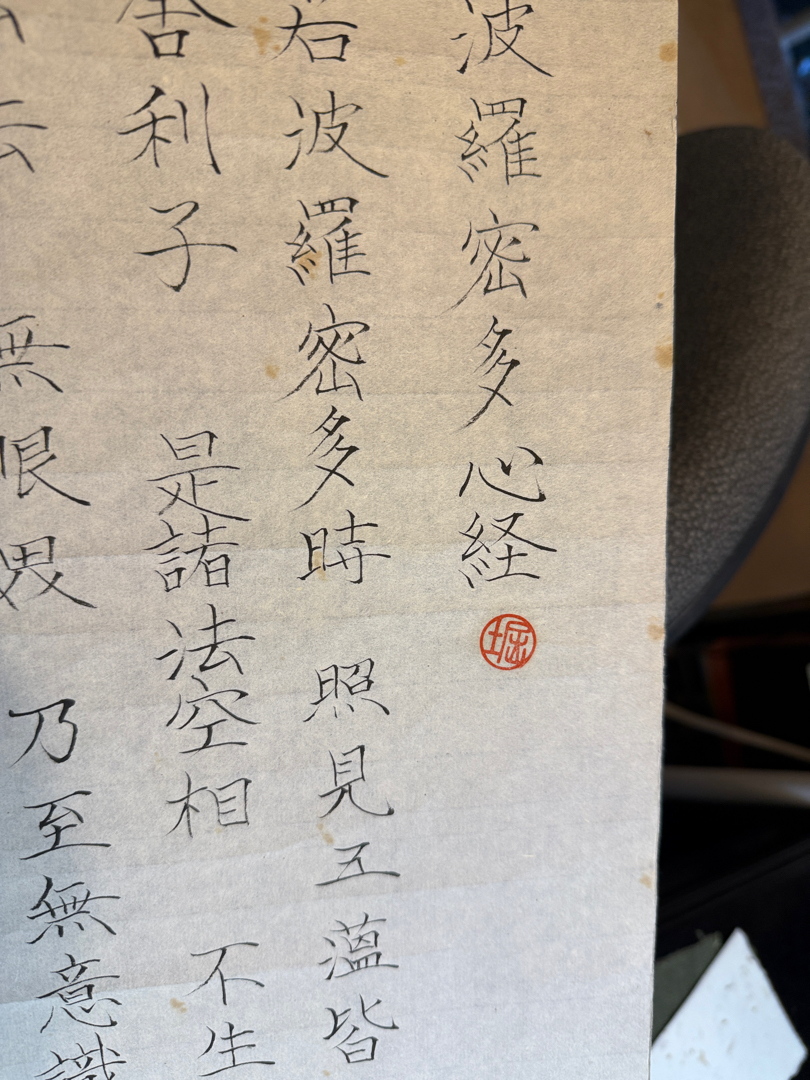 波羅密多心経
堀
若波羅密多時 照見五蘊皆
舎利子 是諸法空相 不生
無眼界 乃至無意識